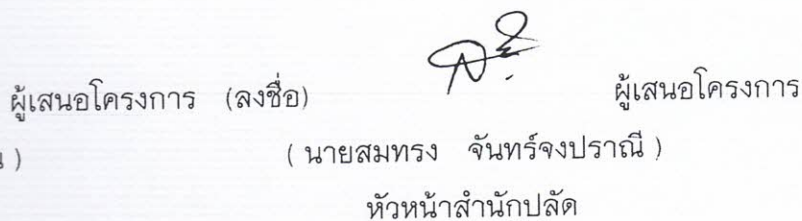 ผู้เสนอโครงการ (ลงชื่อ) ผู้เสนอโครงการ
) ( นายสมทรง จันทร์จงปราณี )
หัวหน้าสำนักปลัด